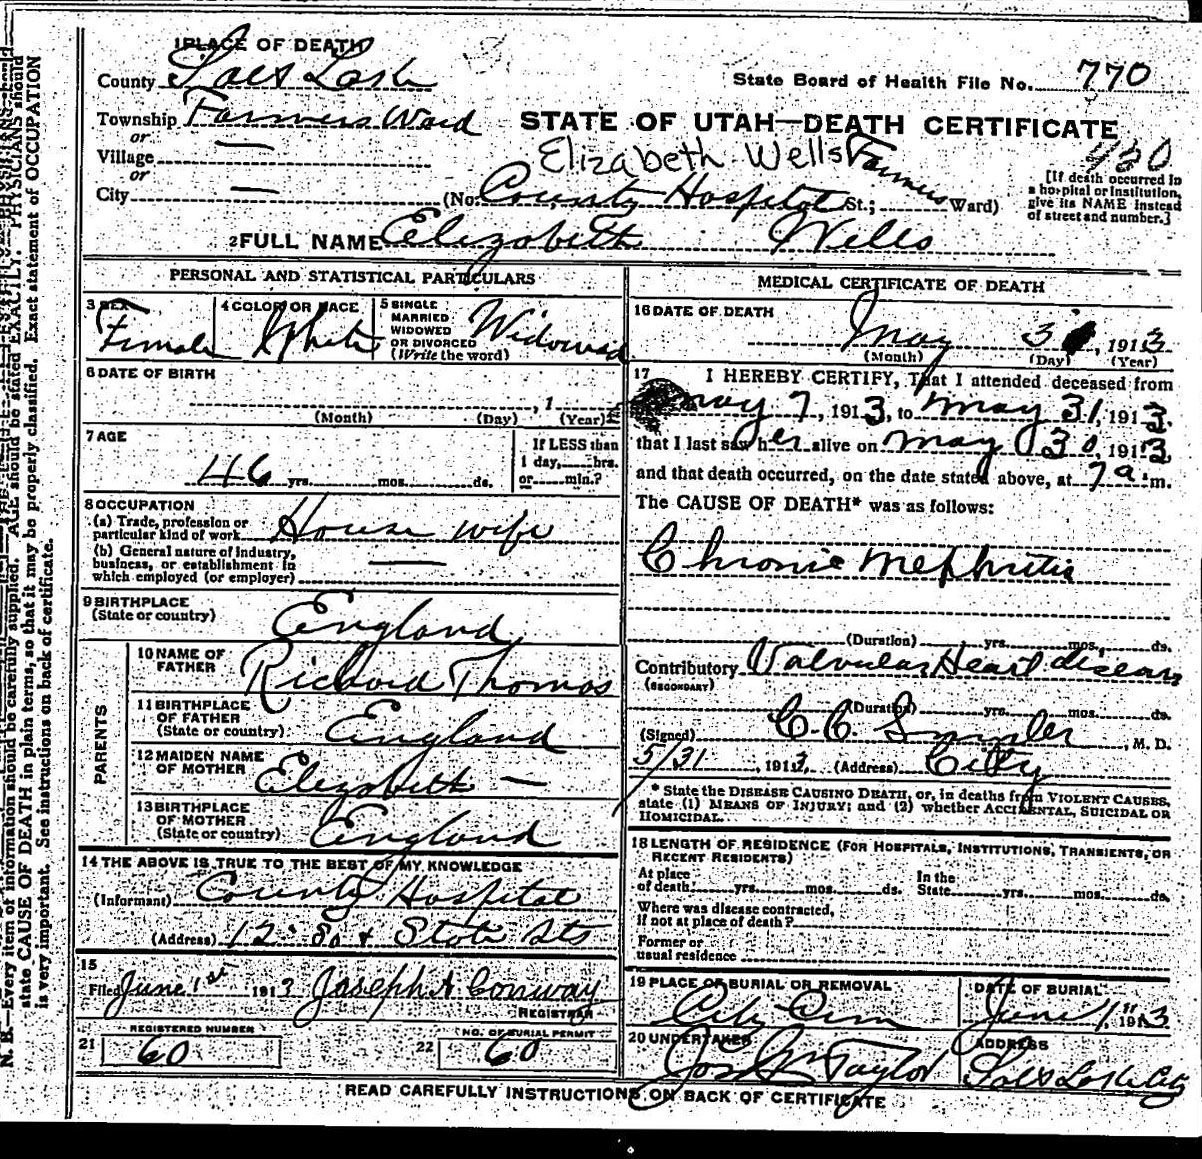 1 PLACE OF DEATH
County Salt Lake
State Board of Health File No. 770
Township Farmers Ward
STATE OF UTAH—DEATH CERTIFICATE
or
Village —
Elizabeth Wells
or
City —
(No. County Hospital St.; Farmers Ward)
[If death occurred in a hospital or institution, give its NAME instead of street and number.]
2 FULL NAME Elizabeth Wells
PERSONAL AND STATISTICAL PARTICULARS
3 SEX
Female
4 COLOR OR RACE
White
5 SINGLE
MARRIED
WIDOWED
OR DIVORCED
(Write the word)
Widowed
6 DATE OF BIRTH
, 1
(Month) (Day) (Year)
7 AGE
46 yrs. mos. ds.
If LESS than
1 day, hrs.
or min.?
8 OCCUPATION
(a) Trade, profession or
particular kind of work House wife
(b) General nature of industry,
business, or establishment in
which employed (or employer) —
9 BIRTHPLACE
(State or country) England
PARENTS
10 NAME OF
FATHER Richard Thomas
11 BIRTHPLACE
OF FATHER
(State or country) England
12 MAIDEN NAME
OF MOTHER Elizabeth —
13 BIRTHPLACE
OF MOTHER
(State or country) England
14 THE ABOVE IS TRUE TO THE BEST OF MY KNOWLEDGE
(Informant) County Hospital
(Address) 12 So & State Sts
15
Filed June 1st 1913 Joseph A Conway
REGISTRAR
REGISTERED NUMBER
21 60
NO. OF BURIAL PERMIT
22 60
MEDICAL CERTIFICATE OF DEATH
16 DATE OF DEATH
May 31, 1913
(Month) (Day) (Year)
17 I HEREBY CERTIFY, That I attended deceased from
May 7, 1913, to May 31, 1913.
that I last saw her alive on May 30, 1913,
and that death occurred, on the date stated above, at 7 a. m.
The CAUSE OF DEATH* was as follows:
Chronic Nephritis
(Duration) yrs. mos. ds.
Contributory Valvular Heart disease
(SECONDARY)
(Duration) yrs. mos. ds.
(Signed) C. C. , M. D.
5/31, 1913. (Address) City
* State the DISEASE CAUSING DEATH, or, in deaths from VIOLENT CAUSES,
state (1) MEANS OF INJURY; and (2) whether ACCIDENTAL, SUICIDAL OR
HOMICIDAL.
18 LENGTH OF RESIDENCE (FOR HOSPITALS, INSTITUTIONS, TRANSIENTS, OR
RECENT RESIDENTS)
At place
of death yrs. mos. ds.
In the
State yrs. mos. ds.
Where was disease contracted,
if not at place of death?
Former or
usual residence
19 PLACE OF BURIAL OR REMOVAL
City Cem
DATE OF BURIAL
June 1", 1913
20 UNDERTAKER
Taylor
ADDRESS
Salt Lake City
READ CAREFULLY INSTRUCTIONS ON BACK OF CERTIFICATE
N. B.—Every item of information should be carefully supplied. AGE should be stated EXACTLY. PHYSICIANS should
state CAUSE OF DEATH in plain terms, so that it may be properly classified. Exact statement of OCCUPATION
is very important. See instructions on back of certificate.